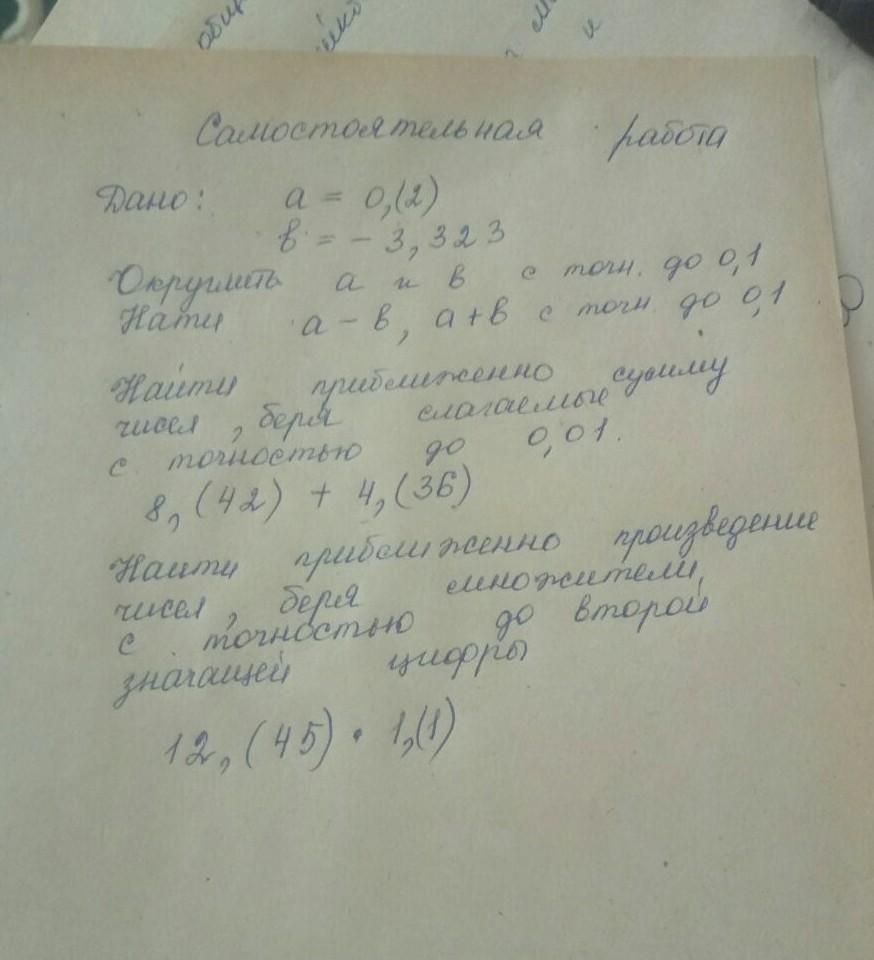 Самостоятельная работа
Дано: a = 0,(2)
в = - 3,323
Округлить а и в с точн. до 0,1
Нати а - в, а + в с точн. до 0,1
Найти приближенно сумму
чисел, беря слагаемые
с точностью до 0,01.
8,(42) + 4,(36)
Наити приближенно произведение
чисел, беря множители,
с точностью до второй
значащей цифры
12,(45) • 1,(1)